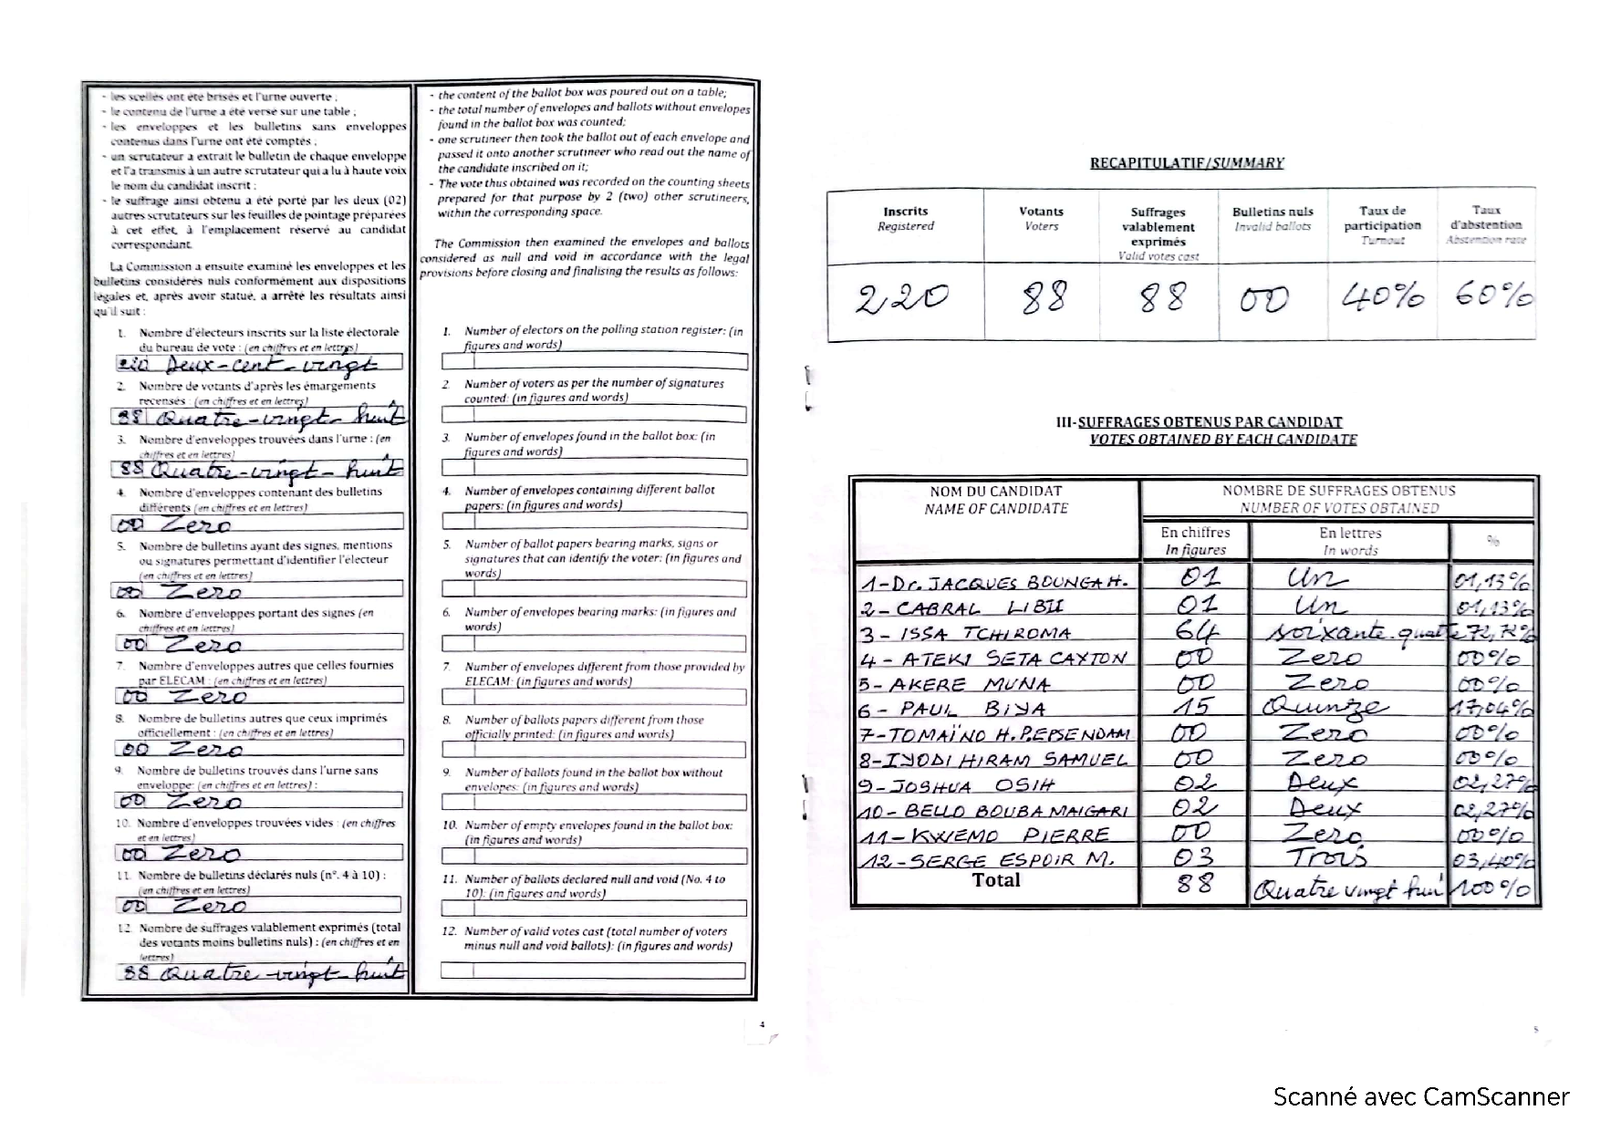 - les scellés ont été brisés et l'urne ouverte ;
- le contenu de l'urne a été versé sur une table ;
- les enveloppes et les bulletins sans enveloppes
contenus dans l'urne ont été comptés ;
- un scrutateur a extrait le bulletin de chaque enveloppe
et l'a transmis à un autre scrutateur qui a lu à haute voix
le nom du candidat inscrit ;
- le suffrage ainsi obtenu a été porté par les deux (02)
autres scrutateurs sur les feuilles de pointage préparées
à cet effet, à l'emplacement réservé au candidat
correspondant.
La Commission a ensuite examiné les enveloppes et les
bulletins considérés nuls conformément aux dispositions
légales et, après avoir statué, a arrêté les résultats ainsi
qu'il suit :
1. Nombre d'électeurs inscrits sur la liste électorale
du bureau de vote : (en chiffres et en lettres)
220 Deux-cent-vingt
2. Nombre de votants d'après les émargements
recensés : (en chiffres et en lettres)
88 Quatre-vingt-huit
3. Nombre d'enveloppes trouvées dans l'urne : (en
chiffres et en lettres)
88 Quatre-vingt-huit
4. Nombre d'enveloppes contenant des bulletins
différents (en chiffres et en lettres)
00 Zero
5. Nombre de bulletins ayant des signes, mentions
ou signatures permettant d'identifier l'électeur
(en chiffres et en lettres)
00 Zero
6. Nombre d'enveloppes portant des signes (en
chiffres et en lettres)
00 Zero
7. Nombre d'enveloppes autres que celles fournies
par ELECAM : (en chiffres et en lettres)
00 Zero
8. Nombre de bulletins autres que ceux imprimés
officiellement : (en chiffres et en lettres)
00 Zero
9. Nombre de bulletins trouvés dans l'urne sans
enveloppe: (en chiffres et en lettres) :
00 Zero
10. Nombre d'enveloppes trouvées vides : (en chiffres
et en lettres)
00 Zero
11. Nombre de bulletins déclarés nuls (n°. 4 à 10) :
(en chiffres et en lettres)
00 Zero
12. Nombre de suffrages valablement exprimés (total
des votants moins bulletins nuls) : (en chiffres et en
lettres)
88 Quatre-vingt-huit
- the content of the ballot box was poured out on a table;
- the total number of envelopes and ballots without envelopes
found in the ballot box was counted;
- one scrutineer then took the ballot out of each envelope and
passed it onto another scrutineer who read out the name of
the candidate inscribed on it;
- The vote thus obtained was recorded on the counting sheets
prepared for that purpose by 2 (two) other scrutineers,
within the corresponding space.
The Commission then examined the envelopes and ballots
considered as null and void in accordance with the legal
provisions before closing and finalising the results as follows:
1. Number of electors on the polling station register: (in
figures and words)
2. Number of voters as per the number of signatures
counted: (in figures and words)
3. Number of envelopes found in the ballot box: (in
figures and words)
4. Number of envelopes containing different ballot
papers: (in figures and words)
5. Number of ballot papers bearing marks, signs or
signatures that can identify the voter: (in figures and
words)
6. Number of envelopes bearing marks: (in figures and
words)
7. Number of envelopes different from those provided by
ELECAM: (in figures and words)
8. Number of ballots papers different from those
officially printed: (in figures and words)
9. Number of ballots found in the ballot box without
envelopes: (in figures and words)
10. Number of empty envelopes found in the ballot box:
(in figures and words)
11. Number of ballots declared null and void (No. 4 to
10): (in figures and words)
12. Number of valid votes cast (total number of voters
minus null and void ballots): (in figures and words)
4
RECAPITULATIF/SUMMARY
Inscrits Registered | Votants Voters | Suffrages valablement exprimés Valid votes cast | Bulletins nuls Invalid ballots | Taux de participation Turnout | Taux d'abstention Abstention rate
220 88 88 00 40% 60%
III-SUFFRAGES OBTENUS PAR CANDIDAT
VOTES OBTAINED BY EACH CANDIDATE
NOM DU CANDIDAT NOMBRE DE SUFFRAGES OBTENUS
NAME OF CANDIDATE NUMBER OF VOTES OBTAINED
En chiffres En lettres %
In figures In words
1-Dr. JACQUES BOUNGAH. 01 Un 01,13%
2- CABRAL LIBII 01 Un 01,13%
3- ISSA TCHIROMA 64 soixante-quatre 72,72%
4- ATEKI SETA CAXTON 00 Zero 00%
5- AKERE MUNA 00 Zero 00%
6- PAUL BIYA 15 Quinze 17,04%
7-TOMAÏNO H.P.EPSENDAM 00 Zero 00%
8-IYODI HIRAM SAMUEL 00 Zero 00%
9- JOSHUA OSIH 02 Deux 02,27%
10- BELLO BOUBA MAIGARI 02 Deux 02,27%
11- KWEMO PIERRE 00 Zero 00%
12-SERGE ESPOIR M. 03 Trois 03,40%
Total 88 Quatre vingt hui 100%
5
Scanné avec CamScanner